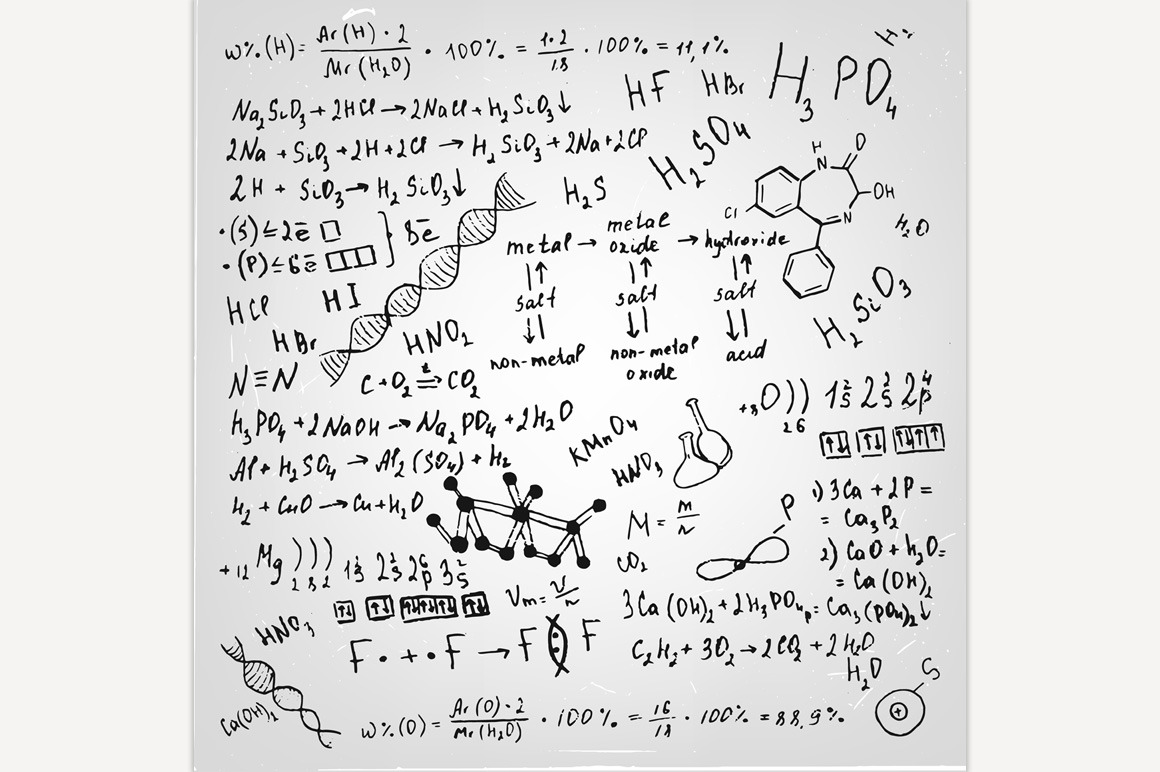 w%(H)= Ar(H)·2 / Mr(H₂O) · 100% = 1·2 / 18 · 100% = 11,1%
HF HBr H₃PO₄
Na₂SiO₃ + 2HCl → 2NaCl + H₂SiO₃↓
2Na + SiO₃ + 2H + 2Cl → H₂SiO₃ + 2Na + 2Cl
H₂SO₄
2H + SiO₃ → H₂SiO₃↓
H₂S
H
N
O
OH
N
Cl
H₂O
·(S) ≤ 2ē
·(P) ≤ 6ē
8ē
metal → metal oxide → hydroxide
↓↑ ↓↑ ↓↑
salt salt salt
↓| ↓| ↓|
non-metal non-metal oxide acid
HCl HI
HBr HNO₂
H₂SiO₃
N≡N
C + O₂ ⇌ CO₂
t
H₃PO₄ + 2NaOH → Na₂PO₄ + 2H₂O
Al + H₂SO₄ → Al₂(SO₄) + H₂
H₂ + CuO → Cu + H₂O
KMnO₄
HNO₃
+8O))
2 6
1s² 2s² 2p⁴
↑↓ ↑↓ ↑↓↑↑
M = m / n
P
1) 3Ca + 2P =
= Ca₃P₂
2) CaO + H₂O =
= Ca(OH)₂
CO₂
+12 Mg )))
2 8 2
1s² 2s² 2p⁶ 3s²
↑↓ ↑↓ ↑↓↑↓↑↓ ↑↓
Vm = V / n
3Ca(OH)₂ + 2H₃PO₄ = Ca₃(PO₄)₂↓
HNO₃
F· + ·F → F : F
C₂H₂ + 3O₂ → 2CO₂ + 2H₂O
H₂O
S
+
Ca(OH)₂
w%(O) = Ar(O)·2 / Mr(H₂O) · 100% = 16 / 18 · 100% = 88,9%